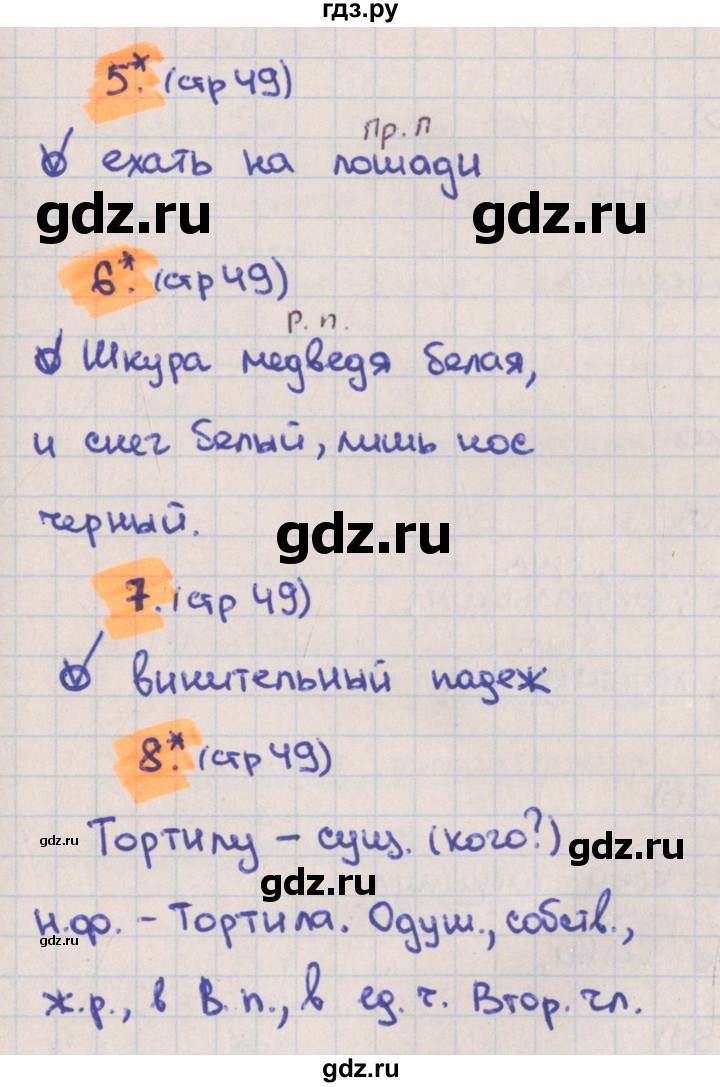 гдз.ру
5*. (стр 49)
Пр. п
ехать на лошади
gdz.ru gdz.ru
6*. (стр 49)
Р. п.
Шкура медведя белая,
и снег белый, лишь нос
gdz.ru
черный.
7. (стр 49)
винительный падеж
8*. (стр 49)
gdz.ru
Тортилу – сущ. (кого?)
gdz.ru
gdz.ru
н.ф. – Тортила. Одуш., собств.,
gdz.ru
ж.р., в В. п., в ед. ч. Втор. чл.
gdz.ru